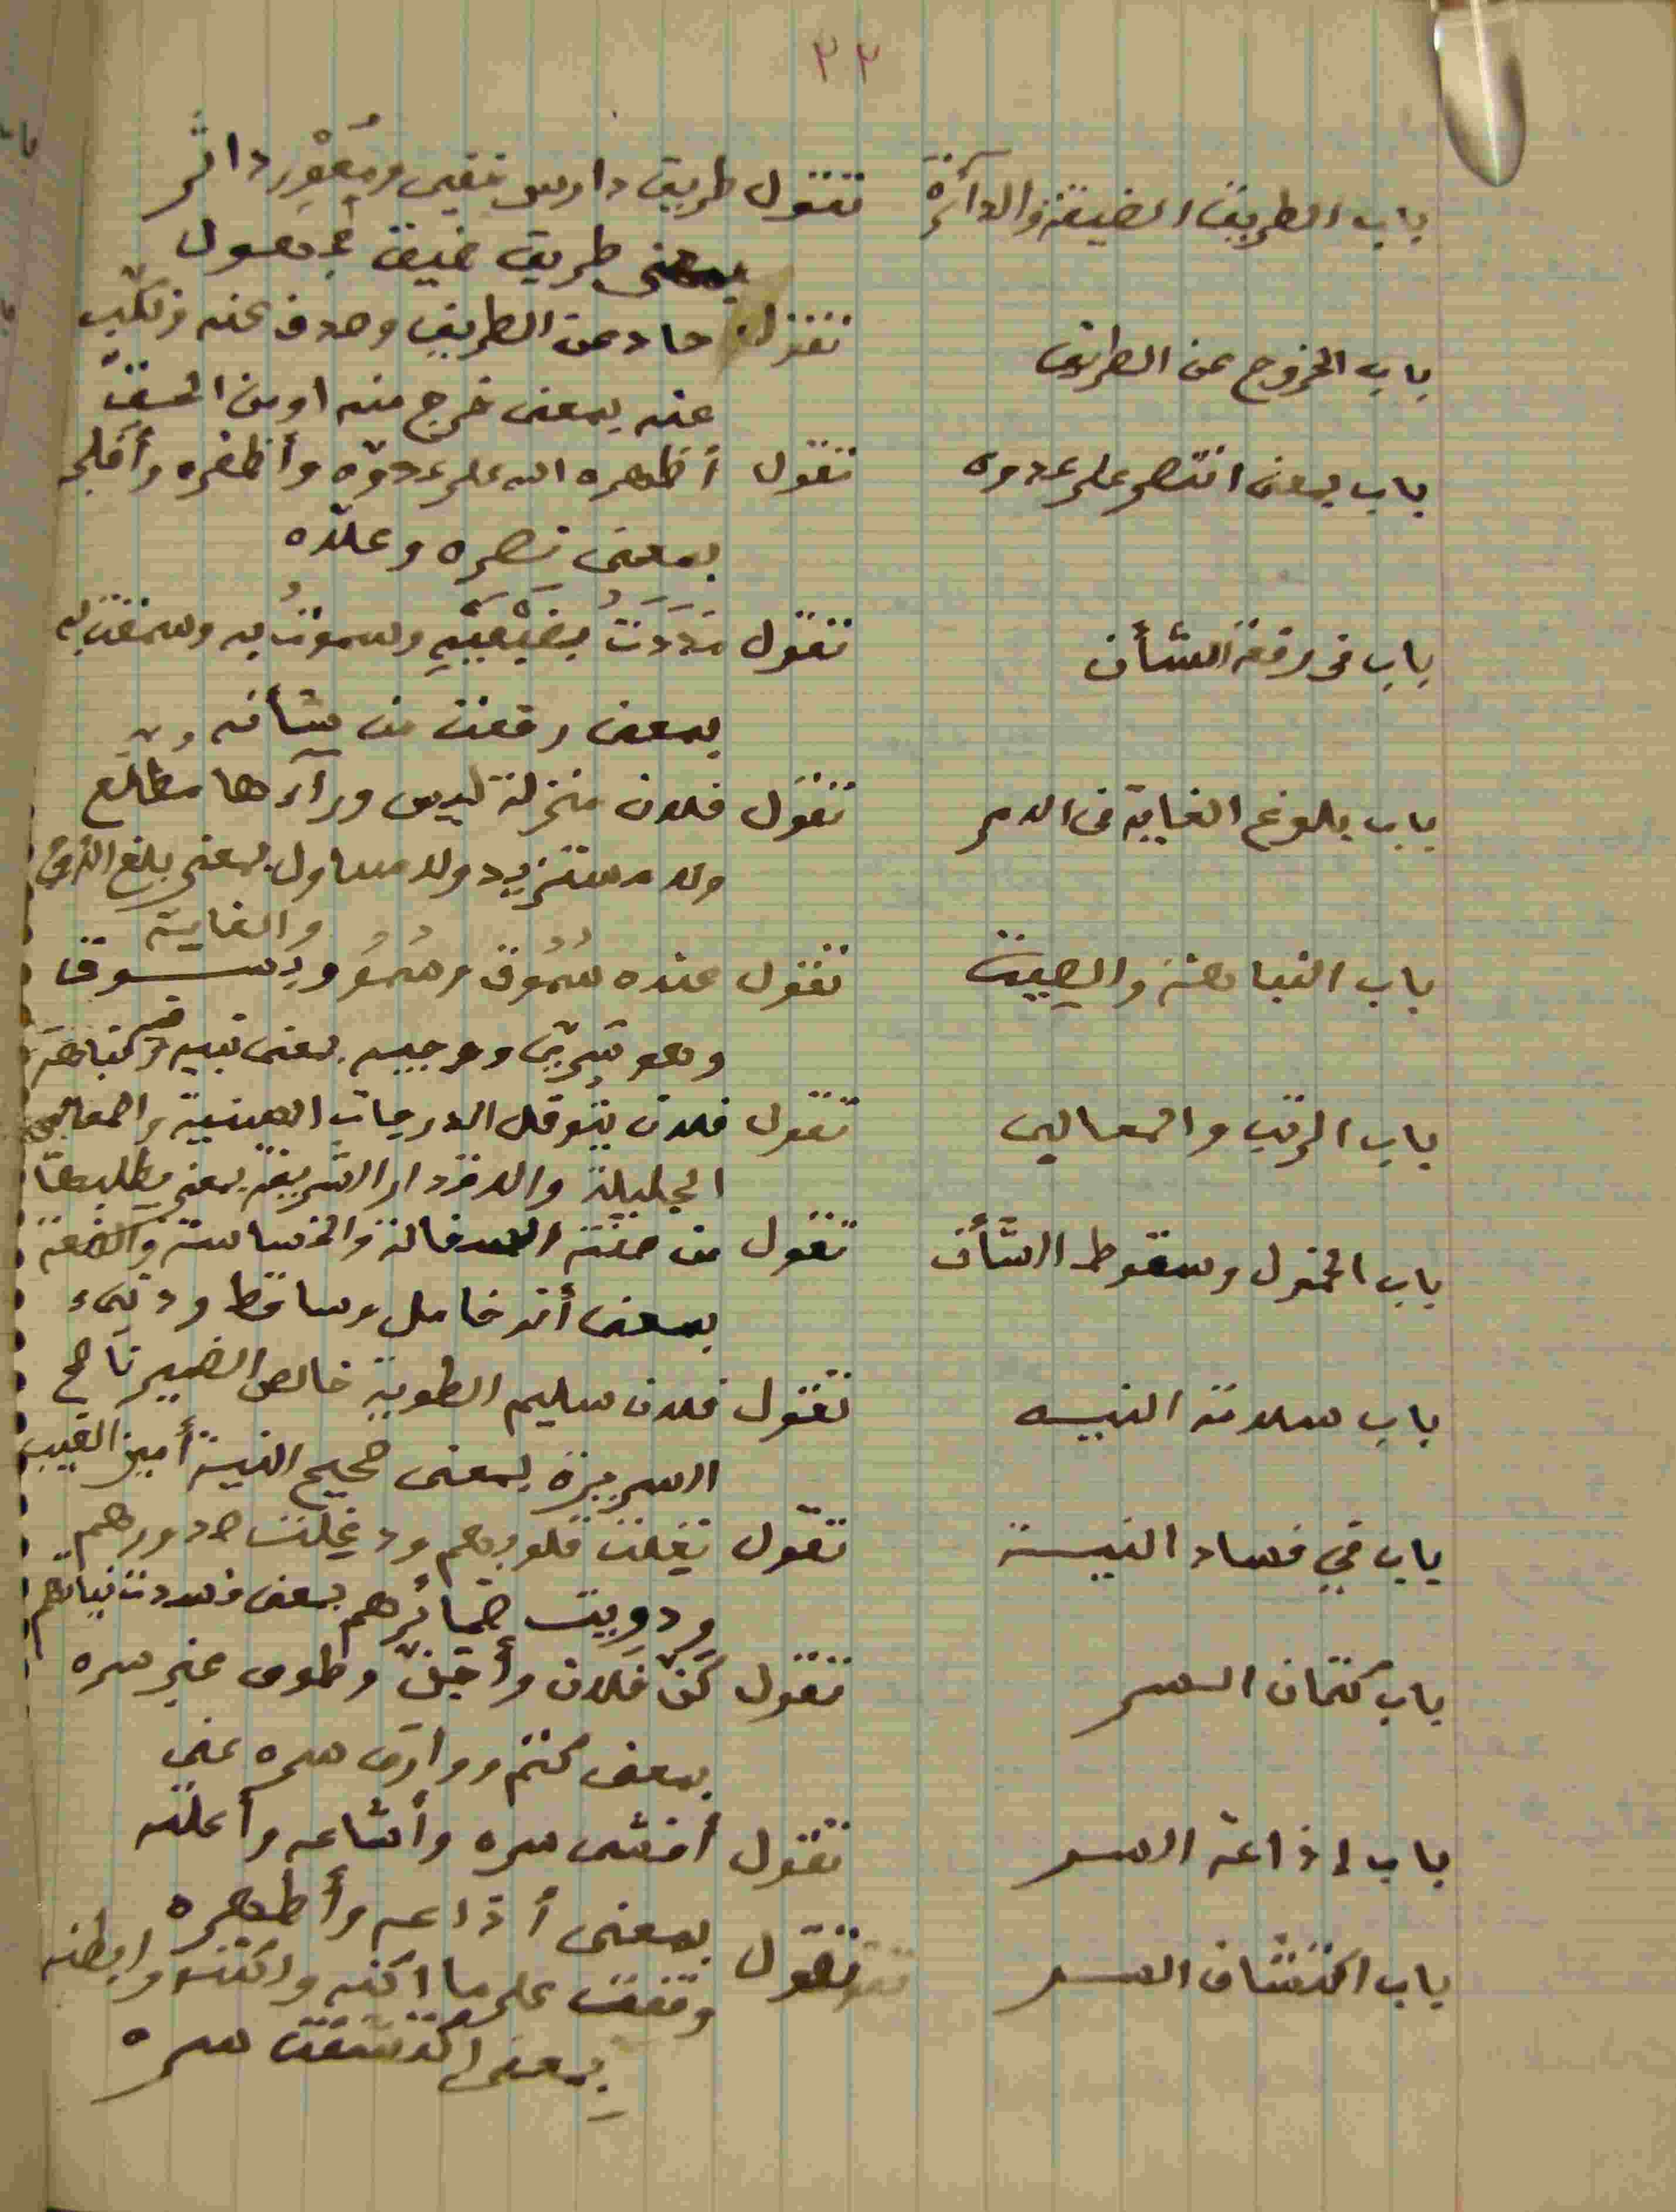 ٢٢
باب الطريق الضيقة والدآثرة تقول طريق دارس خفي ومُعْوِر داثر
بمعنى طريق ضيق مجهول
باب الخروج عن الطريق تقول حاد عن الطريق وصدف عنه ونكّب
عنه بمعنى خرج منه او من الحق
باب بمعنى انتصر على عدوه تقول أظهره الله على عدوّه وأظفره وأفلجه
بمعنى نصره وعلّاه
باب في رفعة الشأن تقول مَدَدَتُ بِضَبْعَيْهِ وسموتُ به
بمعنى رفعت من شأنه
باب بلوغ الغاية في الامر تقول فلان منزلة ليس ورآءها مطلع
ولا مستزيد ولا بمعنى بلغ
والغاية
باب النباهة والصيت تقول عنده سُمُوق وسُمُوُ وبسوق
وهو شريف ووجيه بمعنى نبيه
باب الرتب والمعالي تقول فلان يتوقل الدرجات السنية والمعالي
الجليلة والاقدار الشريفة بمعنى يطلبها
باب الخمول وسقوط الشأن تقول من صفته السفالة والخساسة والضعة
بمعنى أنه خامل وساقط ودنيء
باب سلامة النيه تقول فلان سليم الطوية خالص الضمير ناصح
السريرة بمعنى صحيح النية أمين الغيب
باب في فساد النية تقول نغلت قلوبهم ودغلت صدورهم
ودويت ضمائرهم بمعنى فسدت نياتهم
باب كتمان السر تقول كنّ فلان وأجنّ وطوى عني سره
بمعنى كتم ووارى سره عني
باب إذاعة السر تقول أفشى سره وأشاعه وأعلنه
بمعنى أذاعه وأظهره
باب اكتشاف السر تقول وقفت على ما اكنه واكتنه وابطنه
بمعنى اكتشفت سره